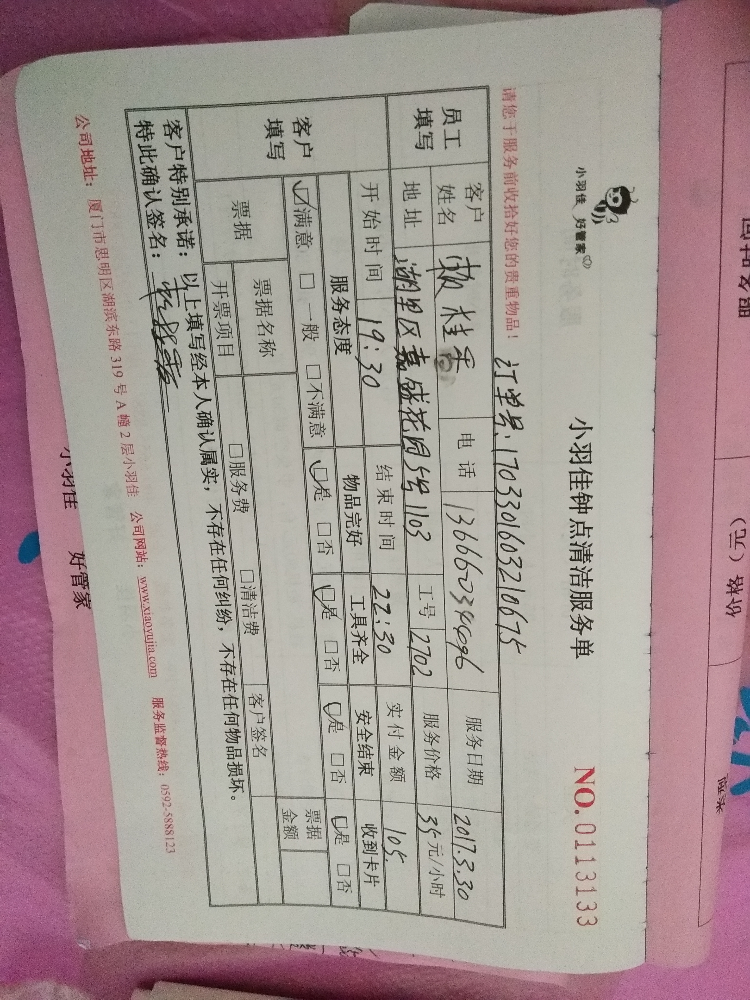 小羽佳 好管家
小羽佳钟点清洁服务单
NO.0113133
请您于服务前收拾好您的贵重物品!
订单号:1703301603210675
员工填写
客户姓名 桂 电话 服务日期 2017.3.30
地址 湖里区嘉盛花园5号1103 工号 2702 服务价格 35元/小时
客户填写
开始时间 19:30 结束时间 22:30 实付金额 105.
服务态度 物品完好 工具齐全 安全结束 收到卡片
☑满意 □一般 □不满意 ☑是 □否 ☑是 □否 ☑是 □否 ☑是 □否
票据 票据名称 票据金额
开票项目 □服务费 □清洁费 客户签名
客户特别承诺:以上填写经本人确认属实,不存在任何纠纷,不存在任何物品损坏。
特此确认签名:
公司地址:厦门市思明区湖滨东路319号A幢2层小羽佳 公司网站:www.xiaoyujia.com 服务监督热线:0592-5888123
小羽佳 好管家